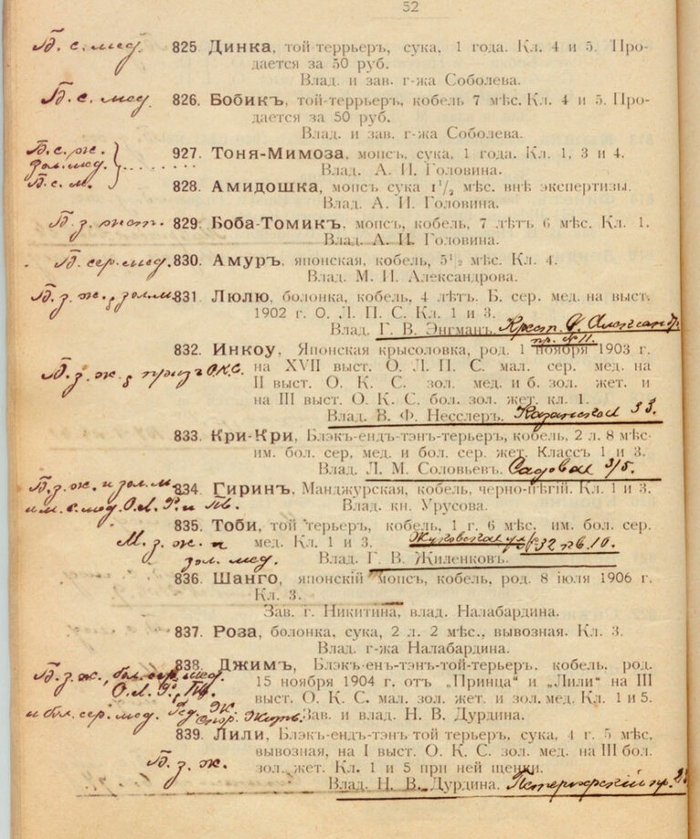 52
Б. с. мед. 825. Динка, той-террьеръ, сука, 1 года. Кл. 4 и 5. Про-
дается за 50 руб.
Влад. и зав. г-жа Соболева.
Б. с. мед. 826. Бобикъ, той-террьеръ, кобель 7 мѣс. Кл. 4 и 5. Про-
дается за 50 руб.
Влад. и зав. г-жа Соболева.
Б. с. ж.
зол. мед.
Б. с. м.
927. Тоня-Мимоза, мопсъ, сука, 1 года. Кл. 1, 3 и 4.
Влад. А. И. Головина.
828. Амидошка, мопсъ сука 1½ мѣс. внѣ экспертизы.
Влад. А. И. Головина.
Б. з. жет. 829. Боба-Томикъ, мопсъ, кобель, 7 лѣтъ 6 мѣс. Кл. 1.
Влад. А. И. Головина.
Б. сер. мед. 830. Амуръ, японская, кобель, 5½ мѣс. Кл. 4.
Влад. М. И. Александрова.
Б. з. ж. зол. м. 831. Люлю, болонка, кобель, 4 лѣтъ. Б. сер. мед. на выст.
1902 г. О. Л. П. С. Кл. 1 и 3.
Влад. Г. В. Энгманъ.
пр. №11.
832. Инкоу, Японская крысоловка, род. 1 ноября 1903 г.
Б. з. ж. призъ О.К.С. на XVII выст. О. Л. П. С. мал. сер. мед. на
II выст. О. К. С. зол. мед. и б. зол. жет. и
на III выст. О. К. С. бол. зол. жет. кл. 1.
Влад. В. Ф. Несслеръ. Казанская 33.
833. Кри-Кри, Блэкъ-ендъ-тэнъ-терьеръ, кобель, 2 л. 8 мѣс.
им. бол. сер, мед. и бол. сер. жет. Классъ 1 и 3.
Влад. Л. М. Соловьевъ. Садовая 3/5.
Б. з. ж. и зол. м.
им. с. мед. О. Л. Р. и Пв.
834. Гиринъ, Манджурская, кобель, черно-пѣгій. Кл. 1 и 3.
Влад. кн. Урусова.
835. Тоби, той терьеръ, кобель, 1 г. 6 мѣс. им. бол. сер.
М. з. ж. и мед. Кл. 1 и 3. Жуковская 32 кв. 10.
зол. мед. Влад. Г. В. Жиленковъ.
836. Шанго, японскій мопсъ, кобель, род. 8 іюля 1906 г.
Кл. 3.
Зав. г. Никитина, влад. Налабардина.
837. Роза, болонка, сука, 2 л. 2 мѣс., вывозная. Кл. 3.
Влад. г-жа Налабардина.
Б. з. ж., бол. сер. мед.
О. Л. Р. Пв.
и бол. сер. мед.
838. Джимъ, Блэкъ-енъ-тэнъ-той-терьеръ. кобель, род.
15 ноября 1904 г. отъ „Принца" и „Лили" на III
выст. О. К. С. мал. зол. жет. и зол. мед. Кл. 1 и 5.
Зав. и влад. Н. В. Дурдина.
839. Лили, Блэкъ-ендъ-тэнъ той терьеръ, сука, 4 г. 5 мѣс.
вывозная, на I выст. О. К. С. зол. мед. на III бол.
Б. з. ж. зол. жет. Кл. 1 и 5 при ней щенки.
Влад. Н. В. Дурдина. Петергофскій пр.